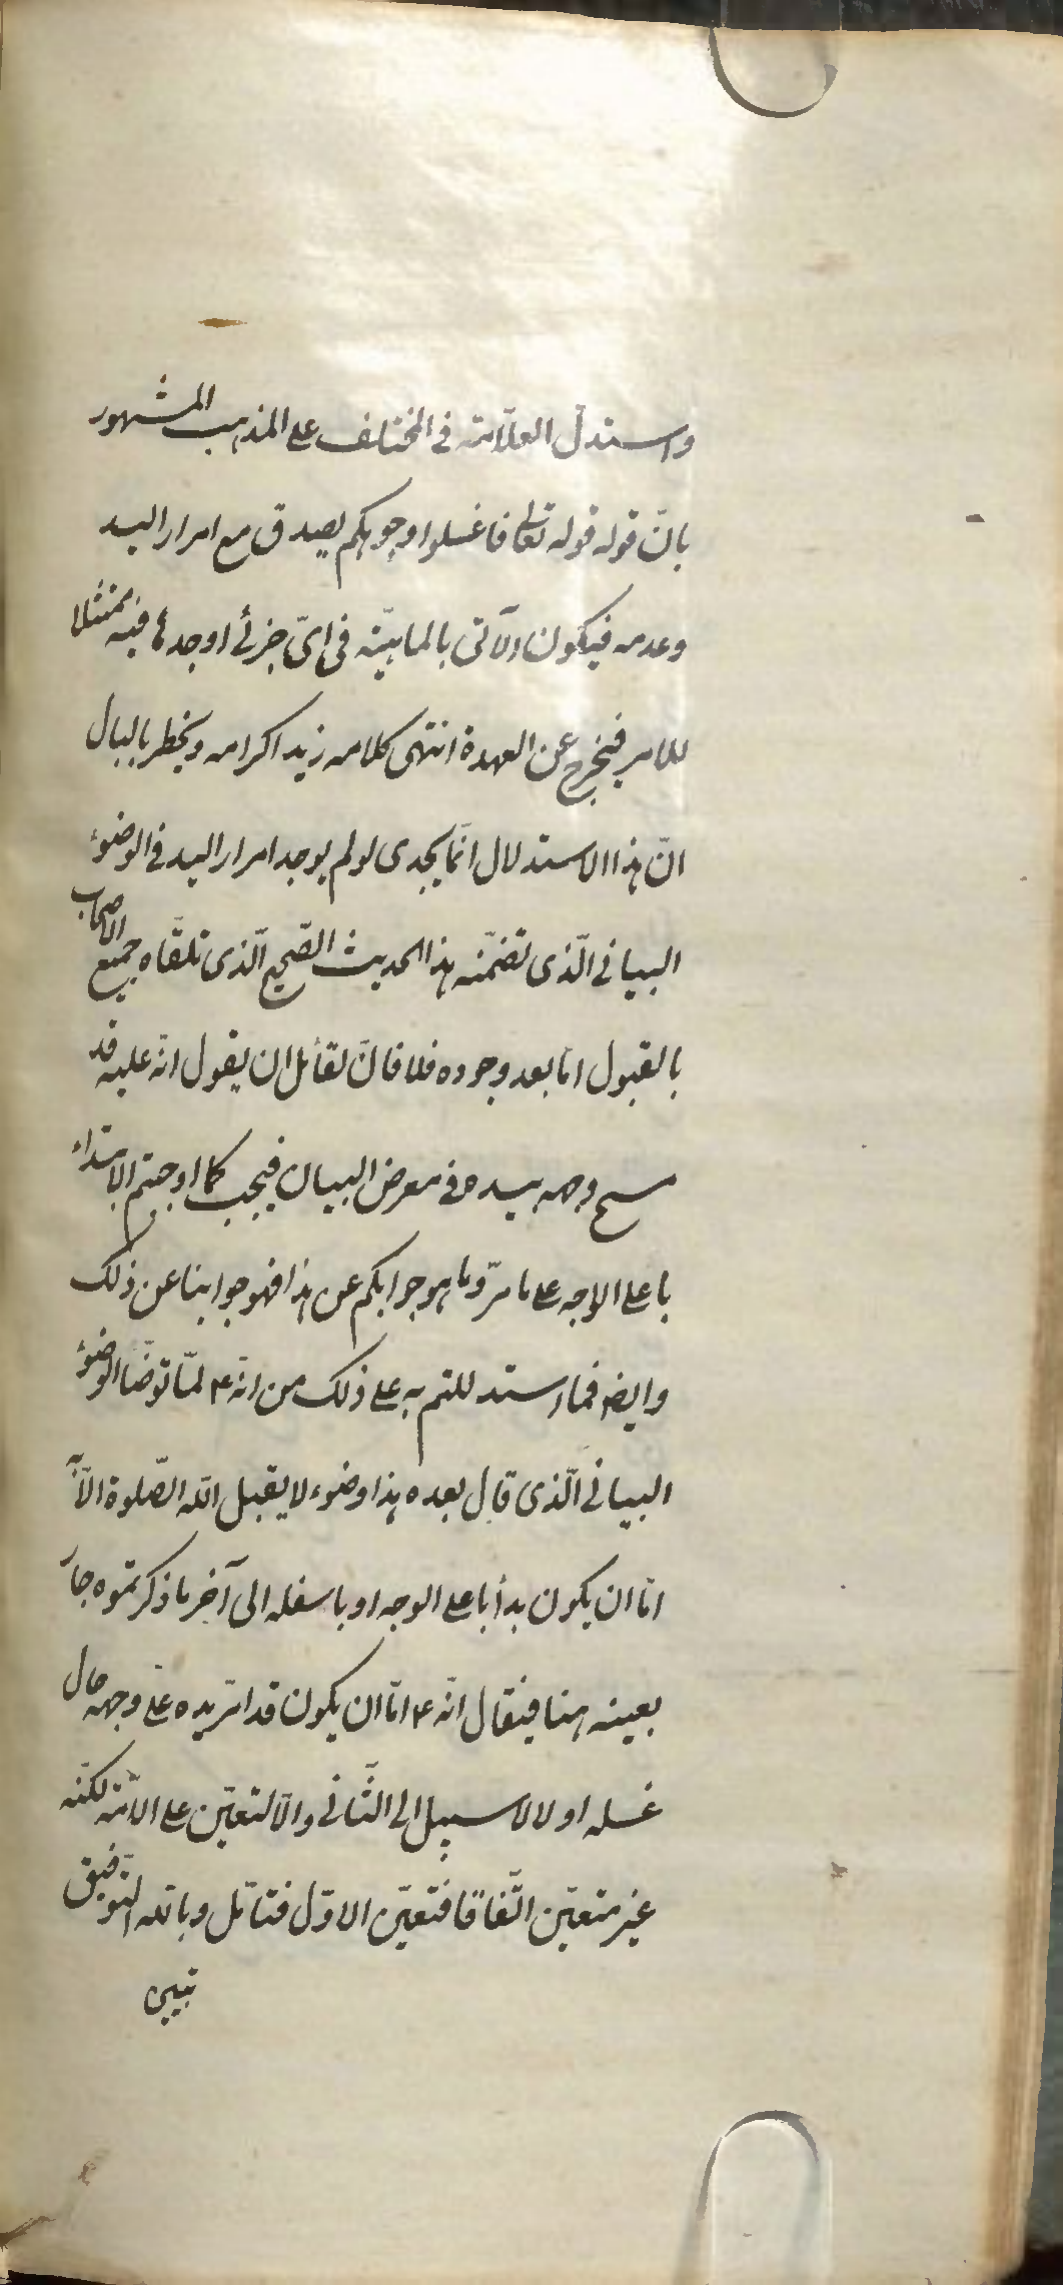 واستدلّ العلّامة في المختلف على المذهب المشهور
بانّ قوله قوله تعالى فاغسلوا وجوهكم يصدق مع امرار اليد
وعدمه فيكون الآتى بالماهيّة في اىّ جزئى اوجدها فيه ممتثلا
للامر فيخرج عن العهدة انتهى كلامه زيد اكرامه ويخطر بالبال
انّ هذا الاستدلال انّما يجدى لو لم يوجد امرار اليد في الوضوء
البيانى الّذى تضمّنه هذا الحديث الصّحيح الّذى تلقّاه جميع الاصحاب
بالقبول امّا بعد وجوده فلا فانّ لقائل ان يقول انّه عليه قد
مسح وجهه بيده في معرض البيان فيجب كما اوجبتم الابتداء
باعلى الوجه على ما مرّ وما هو جوابكم عن هذا فهو جوابنا عن ذلك
وايضا فما استدللتم به على ذلك من انّه ع لمّا توضّا الوضوء
البيانى الّذى قال بعده هذا وضوء لا يقبل الله الصّلوة الّا به
امّا ان يكون بدأ باعلى الوجه او باسفله الى آخر ما ذكرتموه جار
بعينه هنا فيقال انّه ع امّا ان يكون قد امرّ يده على وجهه حال
غسله او لا لا سبيل الى الثّانى والّا لتعيّن على الامّة لكنّه
غير متعيّن اتّفاقا فتعيّن الاوّل فتامّل وبالله التّوفيق
تبيين